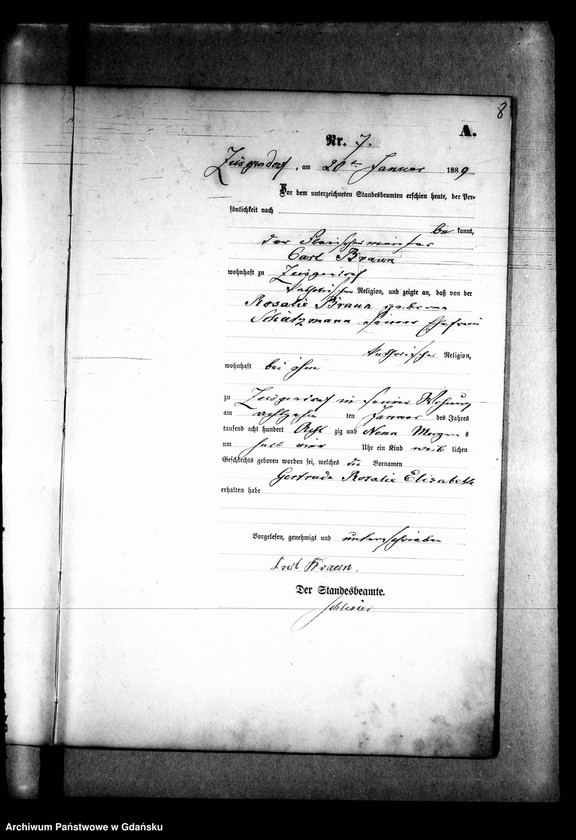 8
A.
Nr. 7.
Zeisgendorf, am 20ten Januar 1889
Vor dem unterzeichneten Standesbeamten erschien heute, der Per-
sönlichkeit nach
be kannt,
der Fleischermeister
Carl Braun
wohnhaft zu Zeisgendorf
katholischer Religion, und zeigte an, daß von der
Rosalie Braun geborenen
Schätzmann seiner Ehefrau
katholischer Religion,
wohnhaft bei ihm
zu Zeisgendorf in seiner Wohnung
am achtzehn ten Januar des Jahres
tausend acht hundert Acht zig und Neun Morgens
um halb vier Uhr ein Kind weib lichen
Geschlechts geboren worden sei, welches die Vornamen
Gertrude Rosalie Elisabeth
erhalten habe
Vorgelesen, genehmigt und unterschrieben
Carl Braun.
Der Standesbeamte.
Archiwum Państwowe w Gdańsku